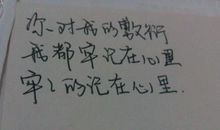 你对我的敷衍
我都牢记在心里
牢牢的记在心里.